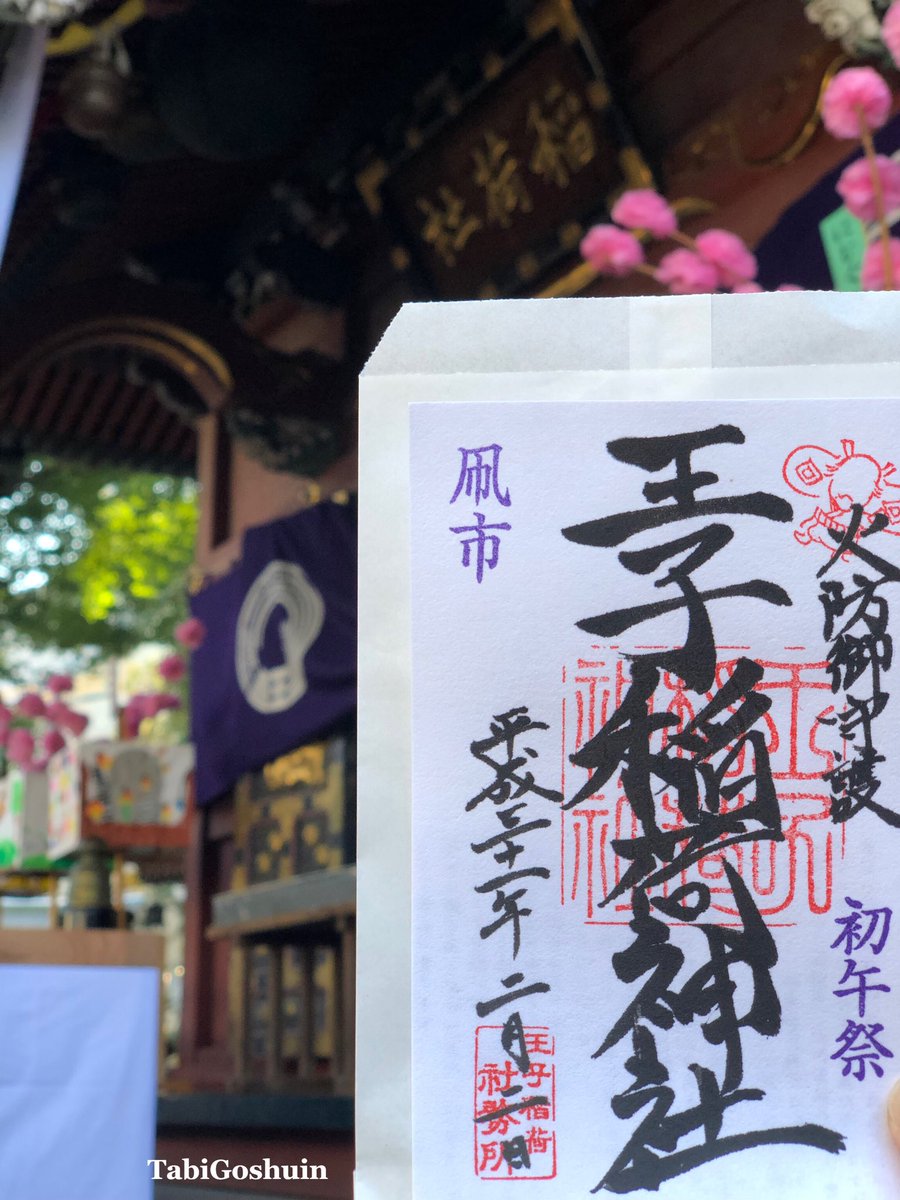 稲荷社
火防御守護
初午祭
王子稲荷神社
平成三十一年二月二日
凧市
王子稲荷
社務所
TabiGoshuin